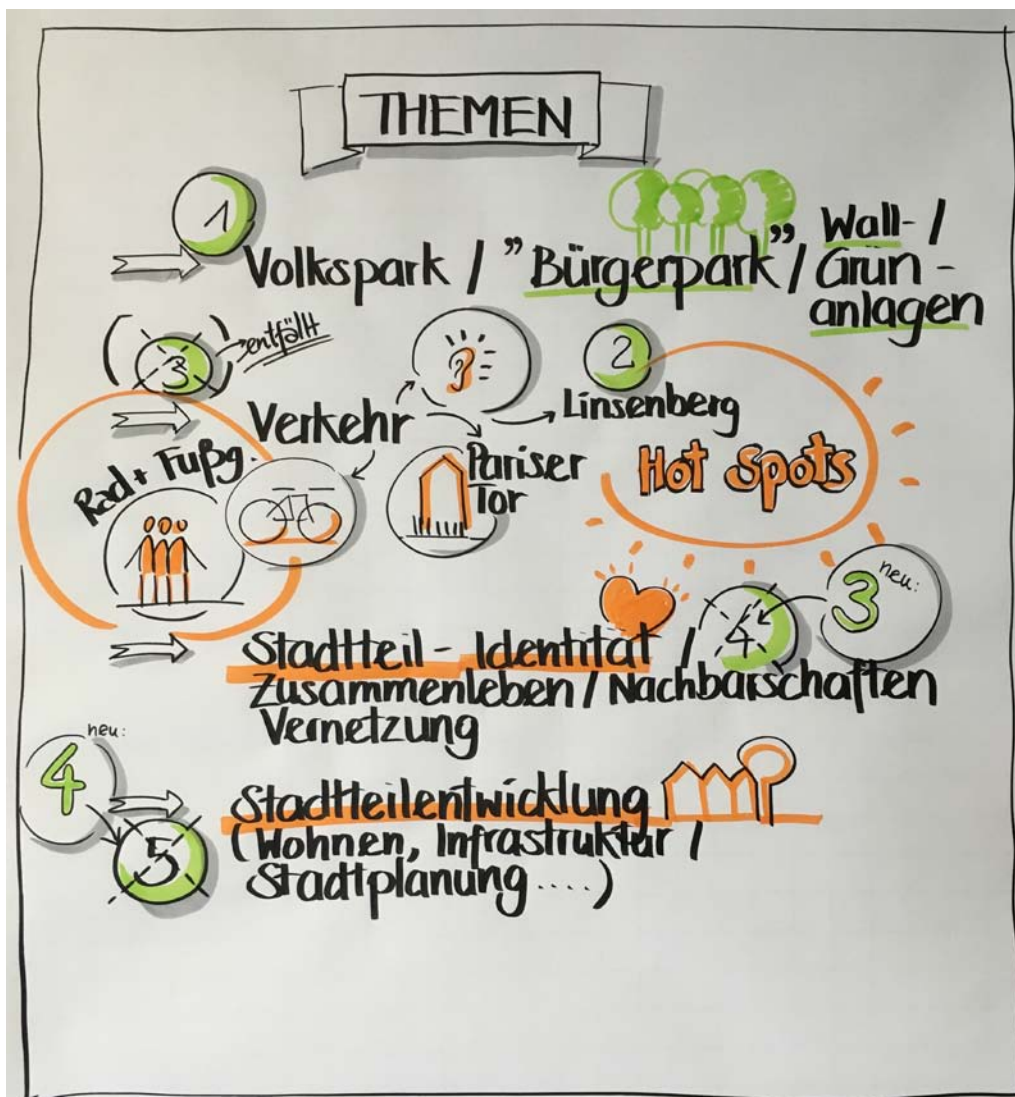 THEMEN
1
Volkspark / "Bürgerpark" / Wall- /
Grün-
anlagen
(3) entfällt
2
Verkehr
Linsenberg
Rad + Fußg.
Pariser
Tor
Hot Spots
neu:
3
4
Stadtteil - Identität /
Zusammenleben / Nachbarschaften
Vernetzung
neu:
4
5
Stadtteilentwicklung
(Wohnen, Infrastruktur /
Stadtplanung ....)